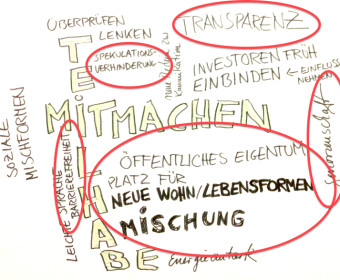 ÜBERPRÜFEN
LENKEN
TRANSPARENZ
SPEKULATIONS-
VERHINDERUNG
INVESTOREN FRÜH
EINBINDEN ← EINFLUSS
NEHMEN
MITMACHEN
TEILHABE
SOZIALE
MISCHFORMEN
LEICHTE SPRACHE
BARRIEREFREIHEIT
ÖFFENTLICHES EIGENTUM
PLATZ FÜR
NEUE WOHN/LEBENSFORMEN
MISCHUNG
Energieautark